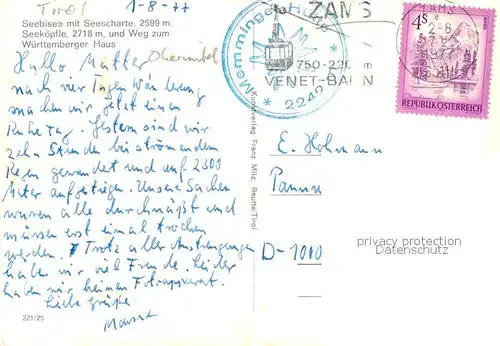 Tirol
1-8-77
Seebisee mit Seescharte, 2599 m.
Seeköpfle, 2718 m, und Weg zum
Württemberger Haus
Hallo Mutter
nach vier Tagen Wanderung
machen wir jetzt einen
Ruhetag. Gestern sind wir
zehn Stunden bei strömendem
Regen gewandert und auf 2500
Meter aufgestiegen. Unsere Sachen
waren alle durchnäßt und
müssen erst einmal trocken
werden. Trotz aller Anstrengungen
haben wir viel Freude. Leider
haben wir keinen Fotoapparat.
Liebe Grüße
221/25
Kunstverlag Franz Milz, Reutte/Tirol
Memminger Hütte
* 2242 *
ZAMS
750-2208 m
VENET-BAHN
ZAMS
2-8
1977
4s
REPUBLIK ÖSTERREICH
E. Hohmann
D-1000
privacy protection
Datenschutz